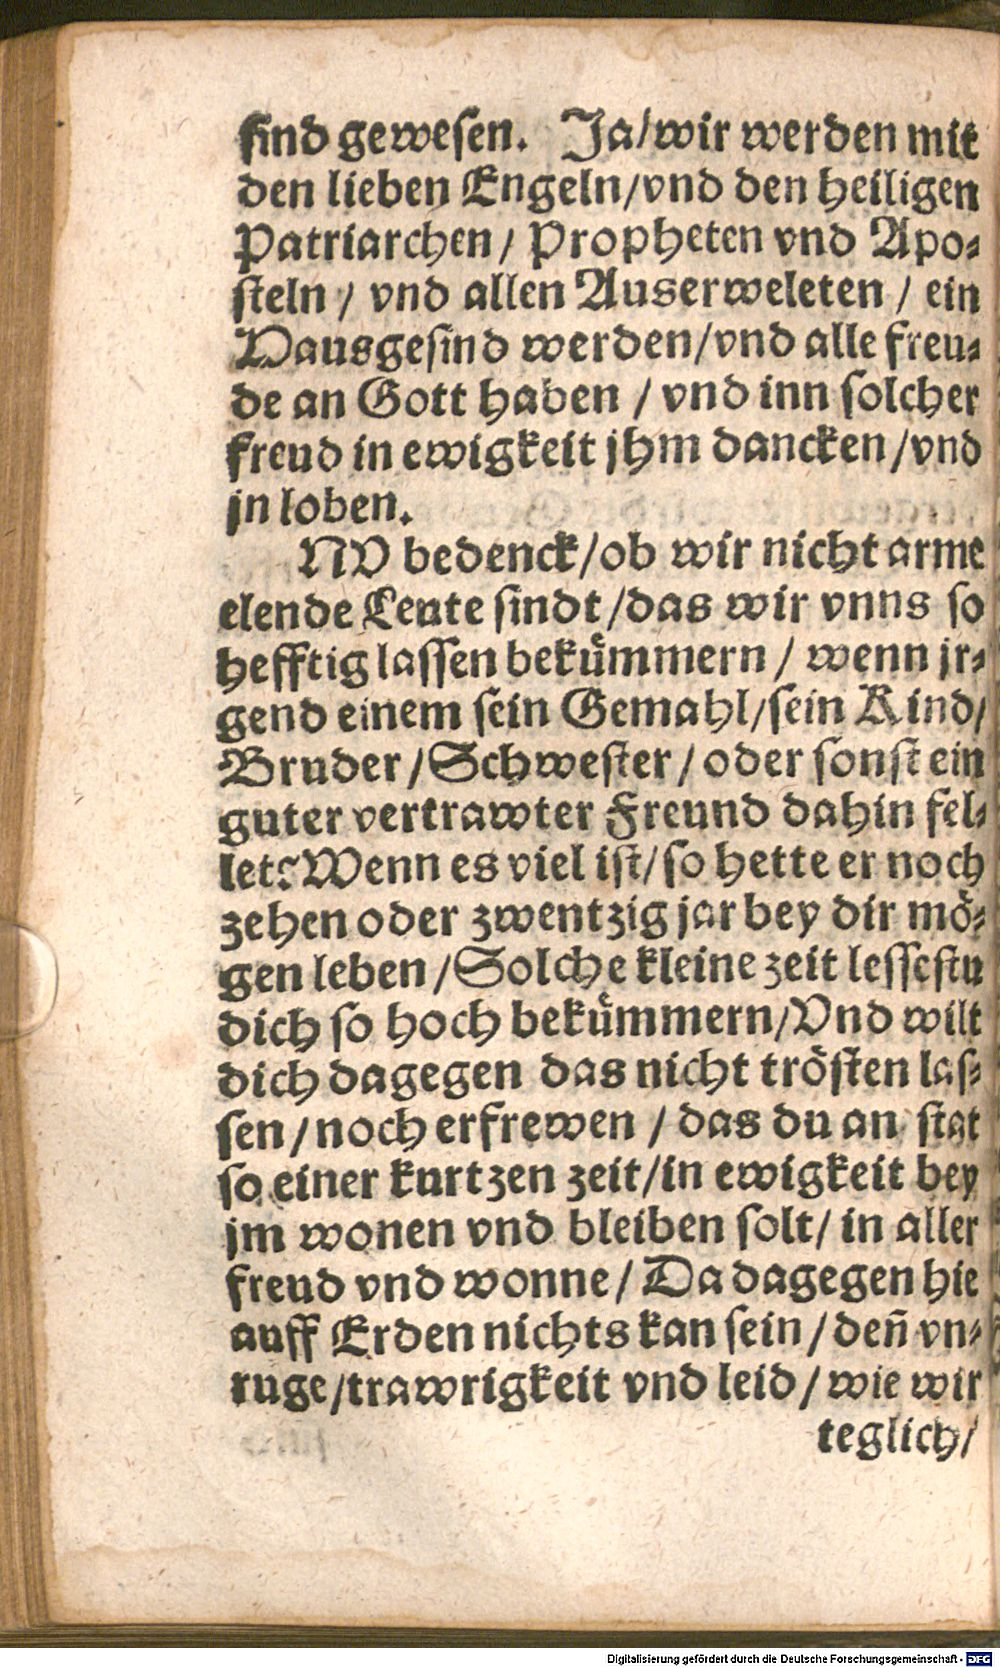 sind gewesen. Ja/wir werden mit
den lieben Engeln/vnd den heiligen
Patriarchen/ Propheten vnd Apo-
steln / vnd allen Auserweleten / ein
Hausgesind werden/vnd alle freu-
de an Gott haben / vnd inn solcher
freud in ewigkeit jhm dancken/vnd
jn loben.
NV bedenck/ob wir nicht arme
elende Leute sindt/das wir vnns so
hefftig lassen bekümmern / wenn jr-
gend einem sein Gemahl/sein Kind/
Bruder/Schwester/oder sonst ein
guter vertrawter Freund dahin fel-
let? Wenn es viel ist/so hette er noch
zehen oder zwentzig jar bey dir mö-
gen leben/Solche kleine zeit lessestu
dich so hoch bekümmern/Vnd wilt
dich dagegen das nicht trösten las-
sen/noch erfrewen / das du an stat
so einer kurtzen zeit/in ewigkeit bey
jm wonen vnd bleiben solt/ in aller
freud vnd wonne/ Da dagegen hie
auff Erden nichts kan sein/deñ vn-
ruge/trawrigkeit vnd leid/ wie wir
teglich/
Digitalisierung gefördert durch die Deutsche Forschungsgemeinschaft - DFG